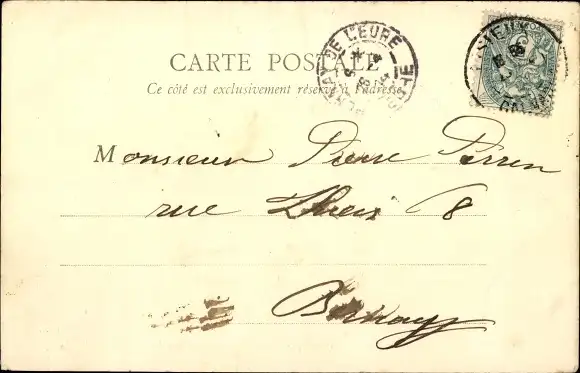 CARTE POSTALE
Ce côté est exclusivement réservé à l'adresse
DE L'EURE
LISIEUX
CALVA
Monsieur Pierre Perren
rue Thiers 8
Bernay